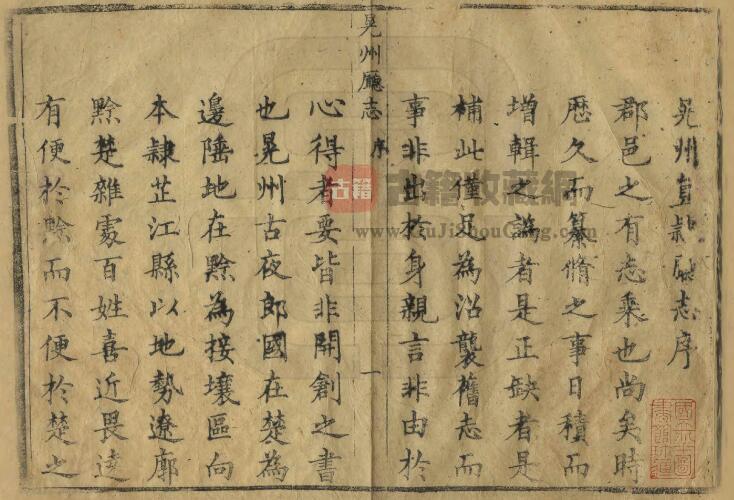 晃州直隷廳志序
郡邑之有志乘也尚矣時
歴久而纂脩之事日積而
增輯之譌者是正缺者是
補此僅足為沿襲舊志而
事非出於身親言非由於
晃州廳志 序 一
心得者要皆非開創之書
也晃州古夜郎國在楚為
邊陲地在黔為接壤區向
本隷芷江縣以地勢遼廓
黔楚雜處百姓喜近畏遠
有便於黔而不便於楚之
古籍 古籍收藏網
www.GuJiShouCang.com